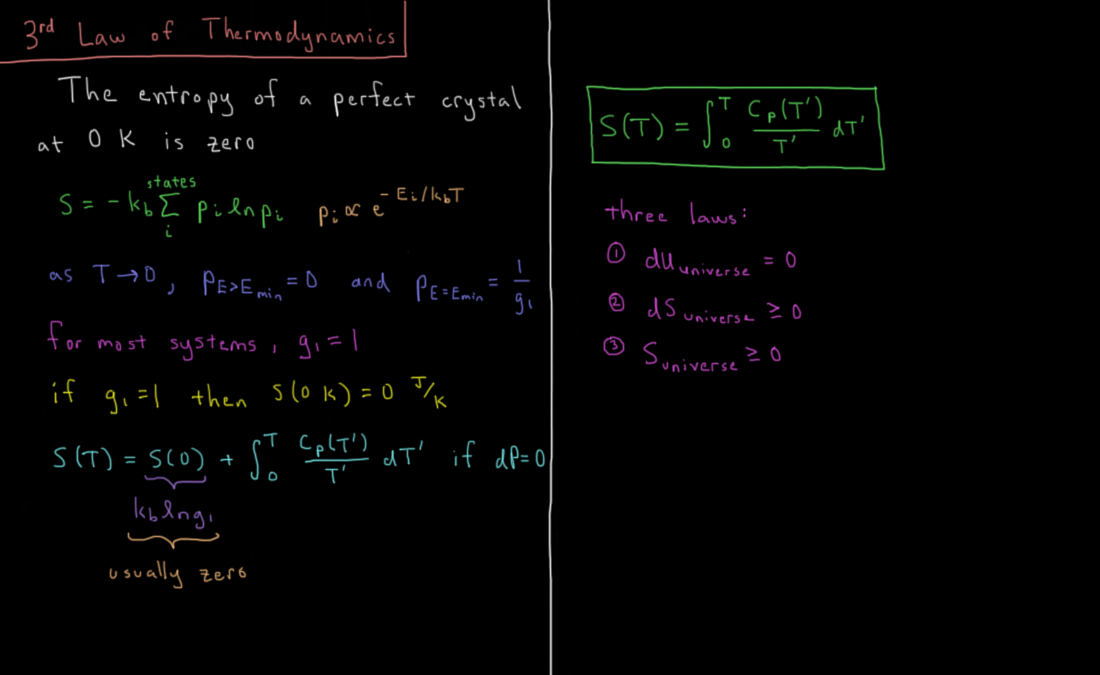 3rd Law of Thermodynamics
The entropy of a perfect crystal
at 0 K is zero
S = -k_b Σ_i^states p_i ln p_i   p_i ∝ e^(-E_i/k_bT)
as T → 0, P_(E>E_min) = 0 and P_(E=E_min) = 1/g₁
for most systems, g₁ = 1
if g₁ = 1 then S(0 K) = 0 J/K
S(T) = S(0) + ∫₀^T C_p(T')/T' dT' if dP=0
k_b ln g₁
usually zero
S(T) = ∫₀^T C_p(T')/T' dT'
three laws:
① dU_universe = 0
② dS_universe ≥ 0
③ S_universe ≥ 0